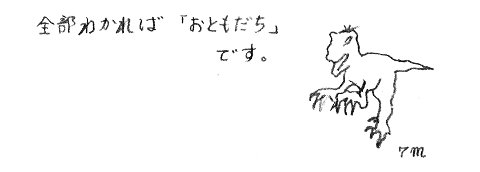 全部わかれば「おともだち」
です。
7m